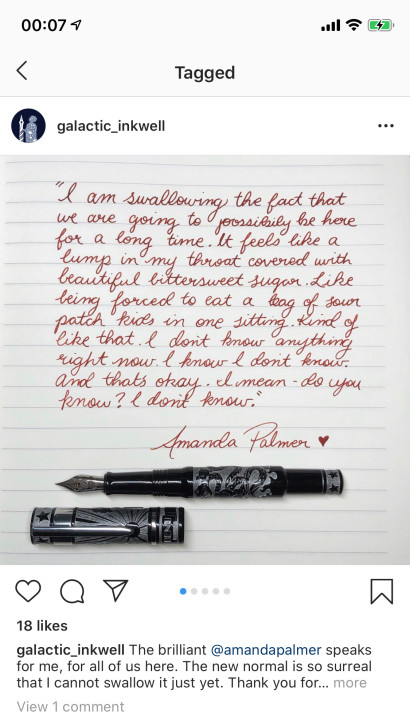 00:07
Tagged
galactic_inkwell
"I am swallowing the fact that
we are going to possibily be here
for a long time. It feels like a
lump in my throat covered with
beautiful bittersweet sugar. Like
being forced to eat a bag of sour
patch kids in one sitting. Kind of
like that. I don't know anything
right now. I know I don't know.
And thats okay. I mean - do you
know? I don't know."
Amanda Palmer ♥
18 likes
galactic_inkwell The brilliant @amandapalmer speaks
for me, for all of us here. The new normal is so surreal
that I cannot swallow it just yet. Thank you for... more
View 1 comment